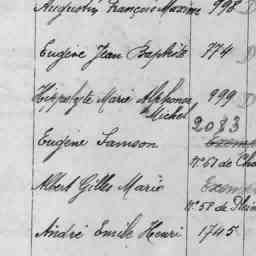 Augustin François Maxime 998
Eugène Jean Baptiste 774
Hippolyte Marie Alphonse 999
Michel
2083
Eugène Samson Exempt
n° 61 de Cha
Albert Gilles Marie Exempt
n° 58 de Plein
André Emile Henri 1745